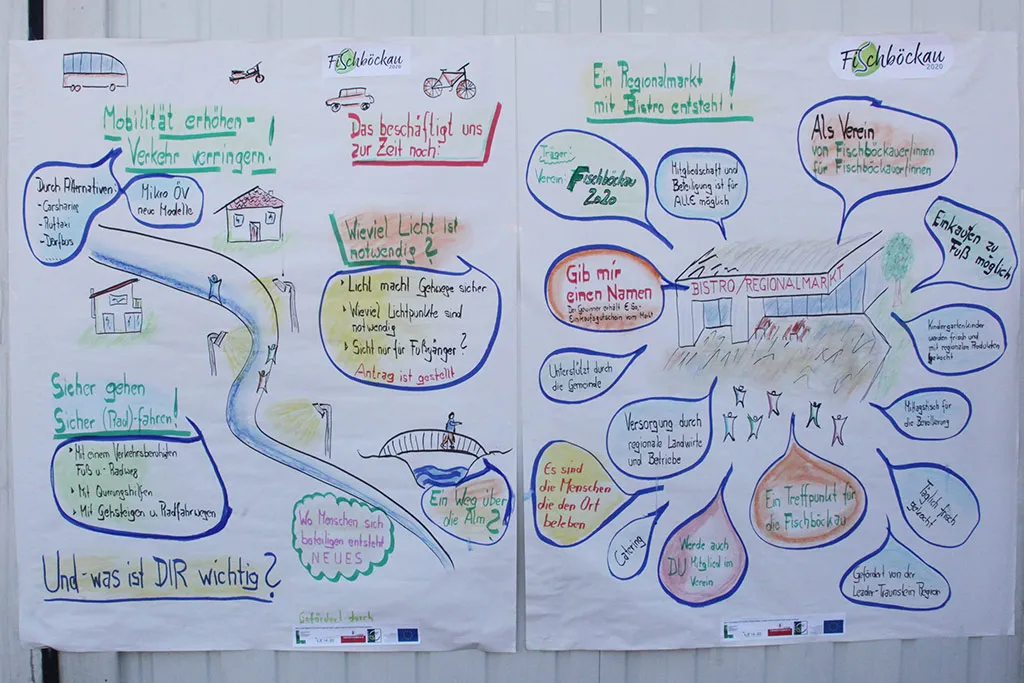 Fischböckau
2020
Mobilität erhöhen -
Verkehr verringern!
Das beschäftigt uns
zur Zeit noch:
Durch Alternativen:
- Carsharing
- Ruftaxi
- Dorfbus
Mikro ÖV
neue Modelle
Wieviel Licht ist
notwendig?
Licht macht Gehwege sicher
Wieviel Lichtpunkte sind
notwendig
Sicht nur für Fußgänger?
Antrag ist gestellt
Sicher gehen
Sicher (Rad)-fahren!
Mit einem Verkehrsberuhigten
Fuß u. Radweg
Mit Querungshilfen
Mit Gehsteigen u. Radfahrwegen
Ein Weg über
die Alm?
Wo Menschen sich
beteiligen entsteht
NEUES
Und was ist DIR wichtig?
Gefördert durch
Fischböckau
2020
Ein Regionalmarkt
mit Bistro entsteht!
Träger:
Verein: Fischböckau
2020
Mitgliedschaft und
Beteiligung ist für
ALLE möglich
Als Verein
von Fischböckauer/innen
für Fischböckauer/innen
Einkaufen zu
Fuß möglich
Gib mir
einen Namen
Der Gewinner erhält € 50,-
Einkaufsgutschein vom Markt
BISTRO/REGIONALMARKT
Kindergartenkinder
werden frisch und
mit regionalen Produkten
bekocht
Unterstützt durch
die Gemeinde
Versorgung durch
regionale Landwirte
und Betriebe
Mittagstisch für
die Bevölkerung
Es sind
die Menschen
die den Ort
beleben
Catering
Werde auch
DU Mitglied im
Verein
Ein Treffpunkt für
die Fischböckau
Täglich frisch
gekocht
Gefördert von der
Leader-Traunstein Region